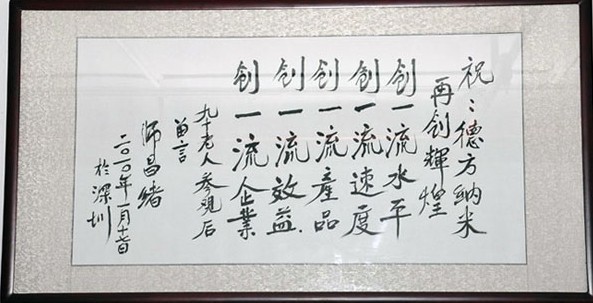 祝：德方納米
再创輝煌
创一流水平
创一流速度
创一流産品
创一流效益.
创一流企業
九十老人参观后
留言
师昌緒
二〇一〇年一月十七日
於深圳